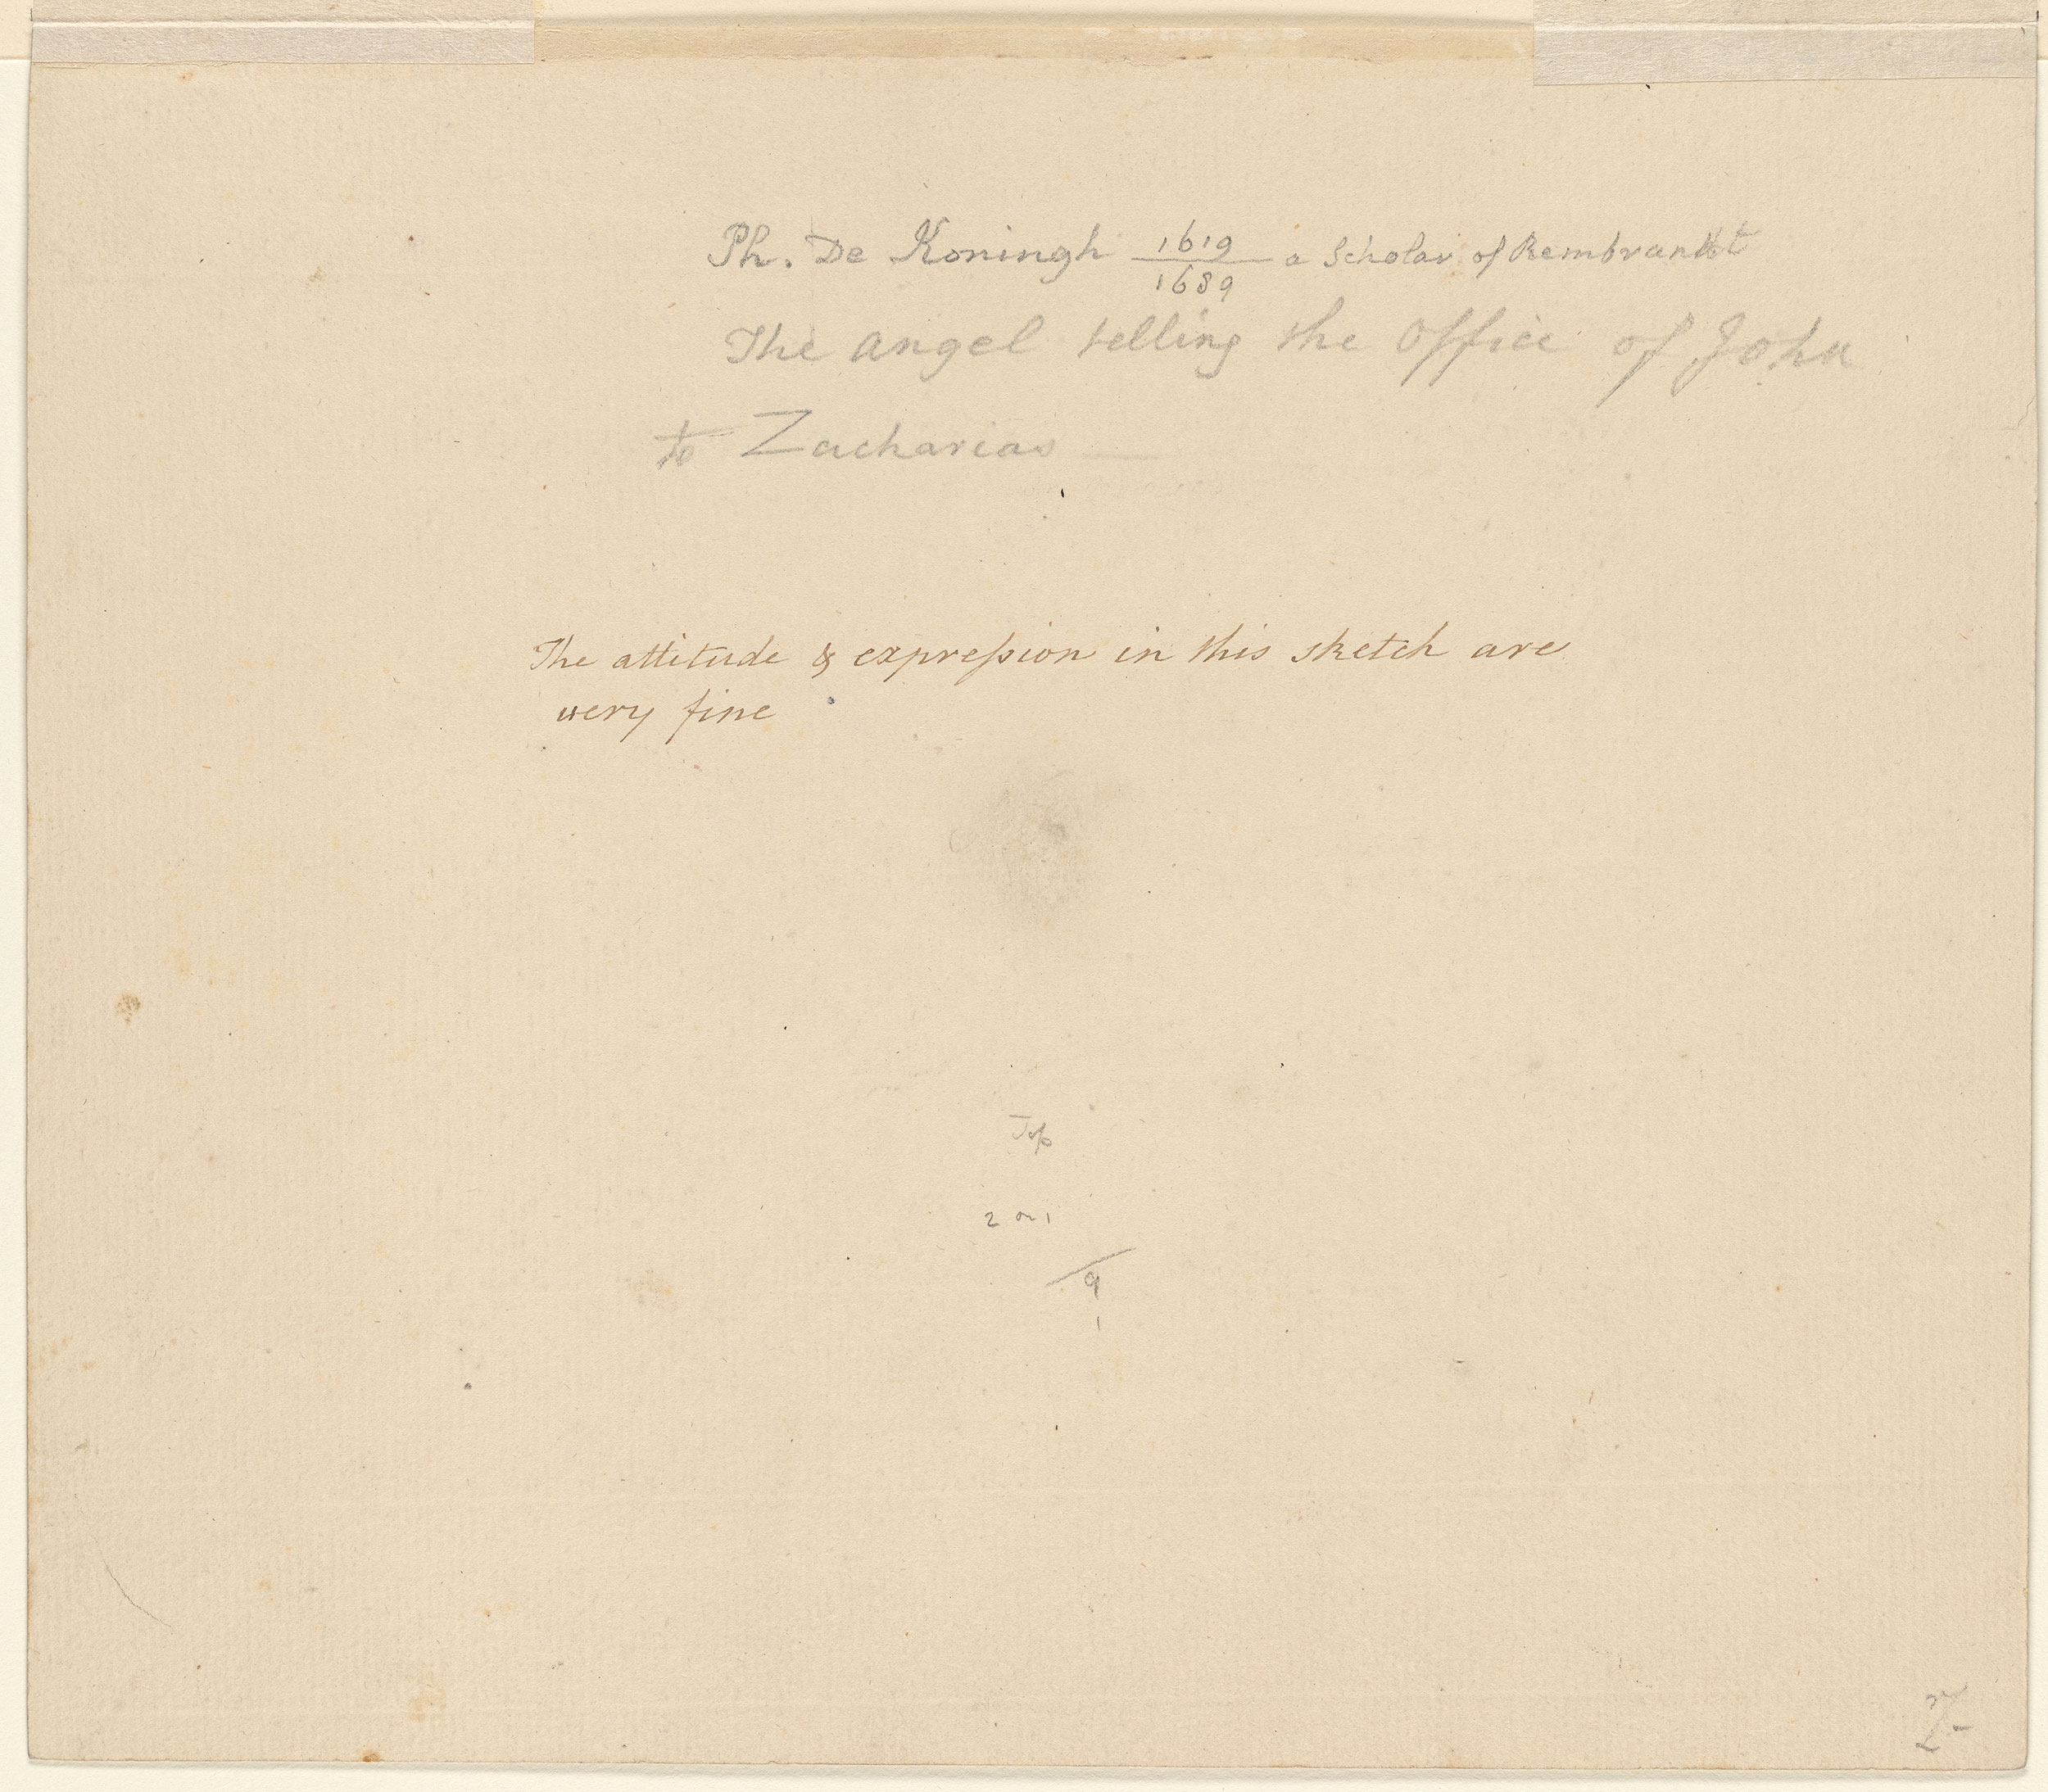 Ph. De Koningh 1619/1689 a Scholar of Rembrandt
The angel telling the Office of John
to Zacharias
The attitude & expreſsion in this sketch are
very fine
Top
2 on 1
9
1